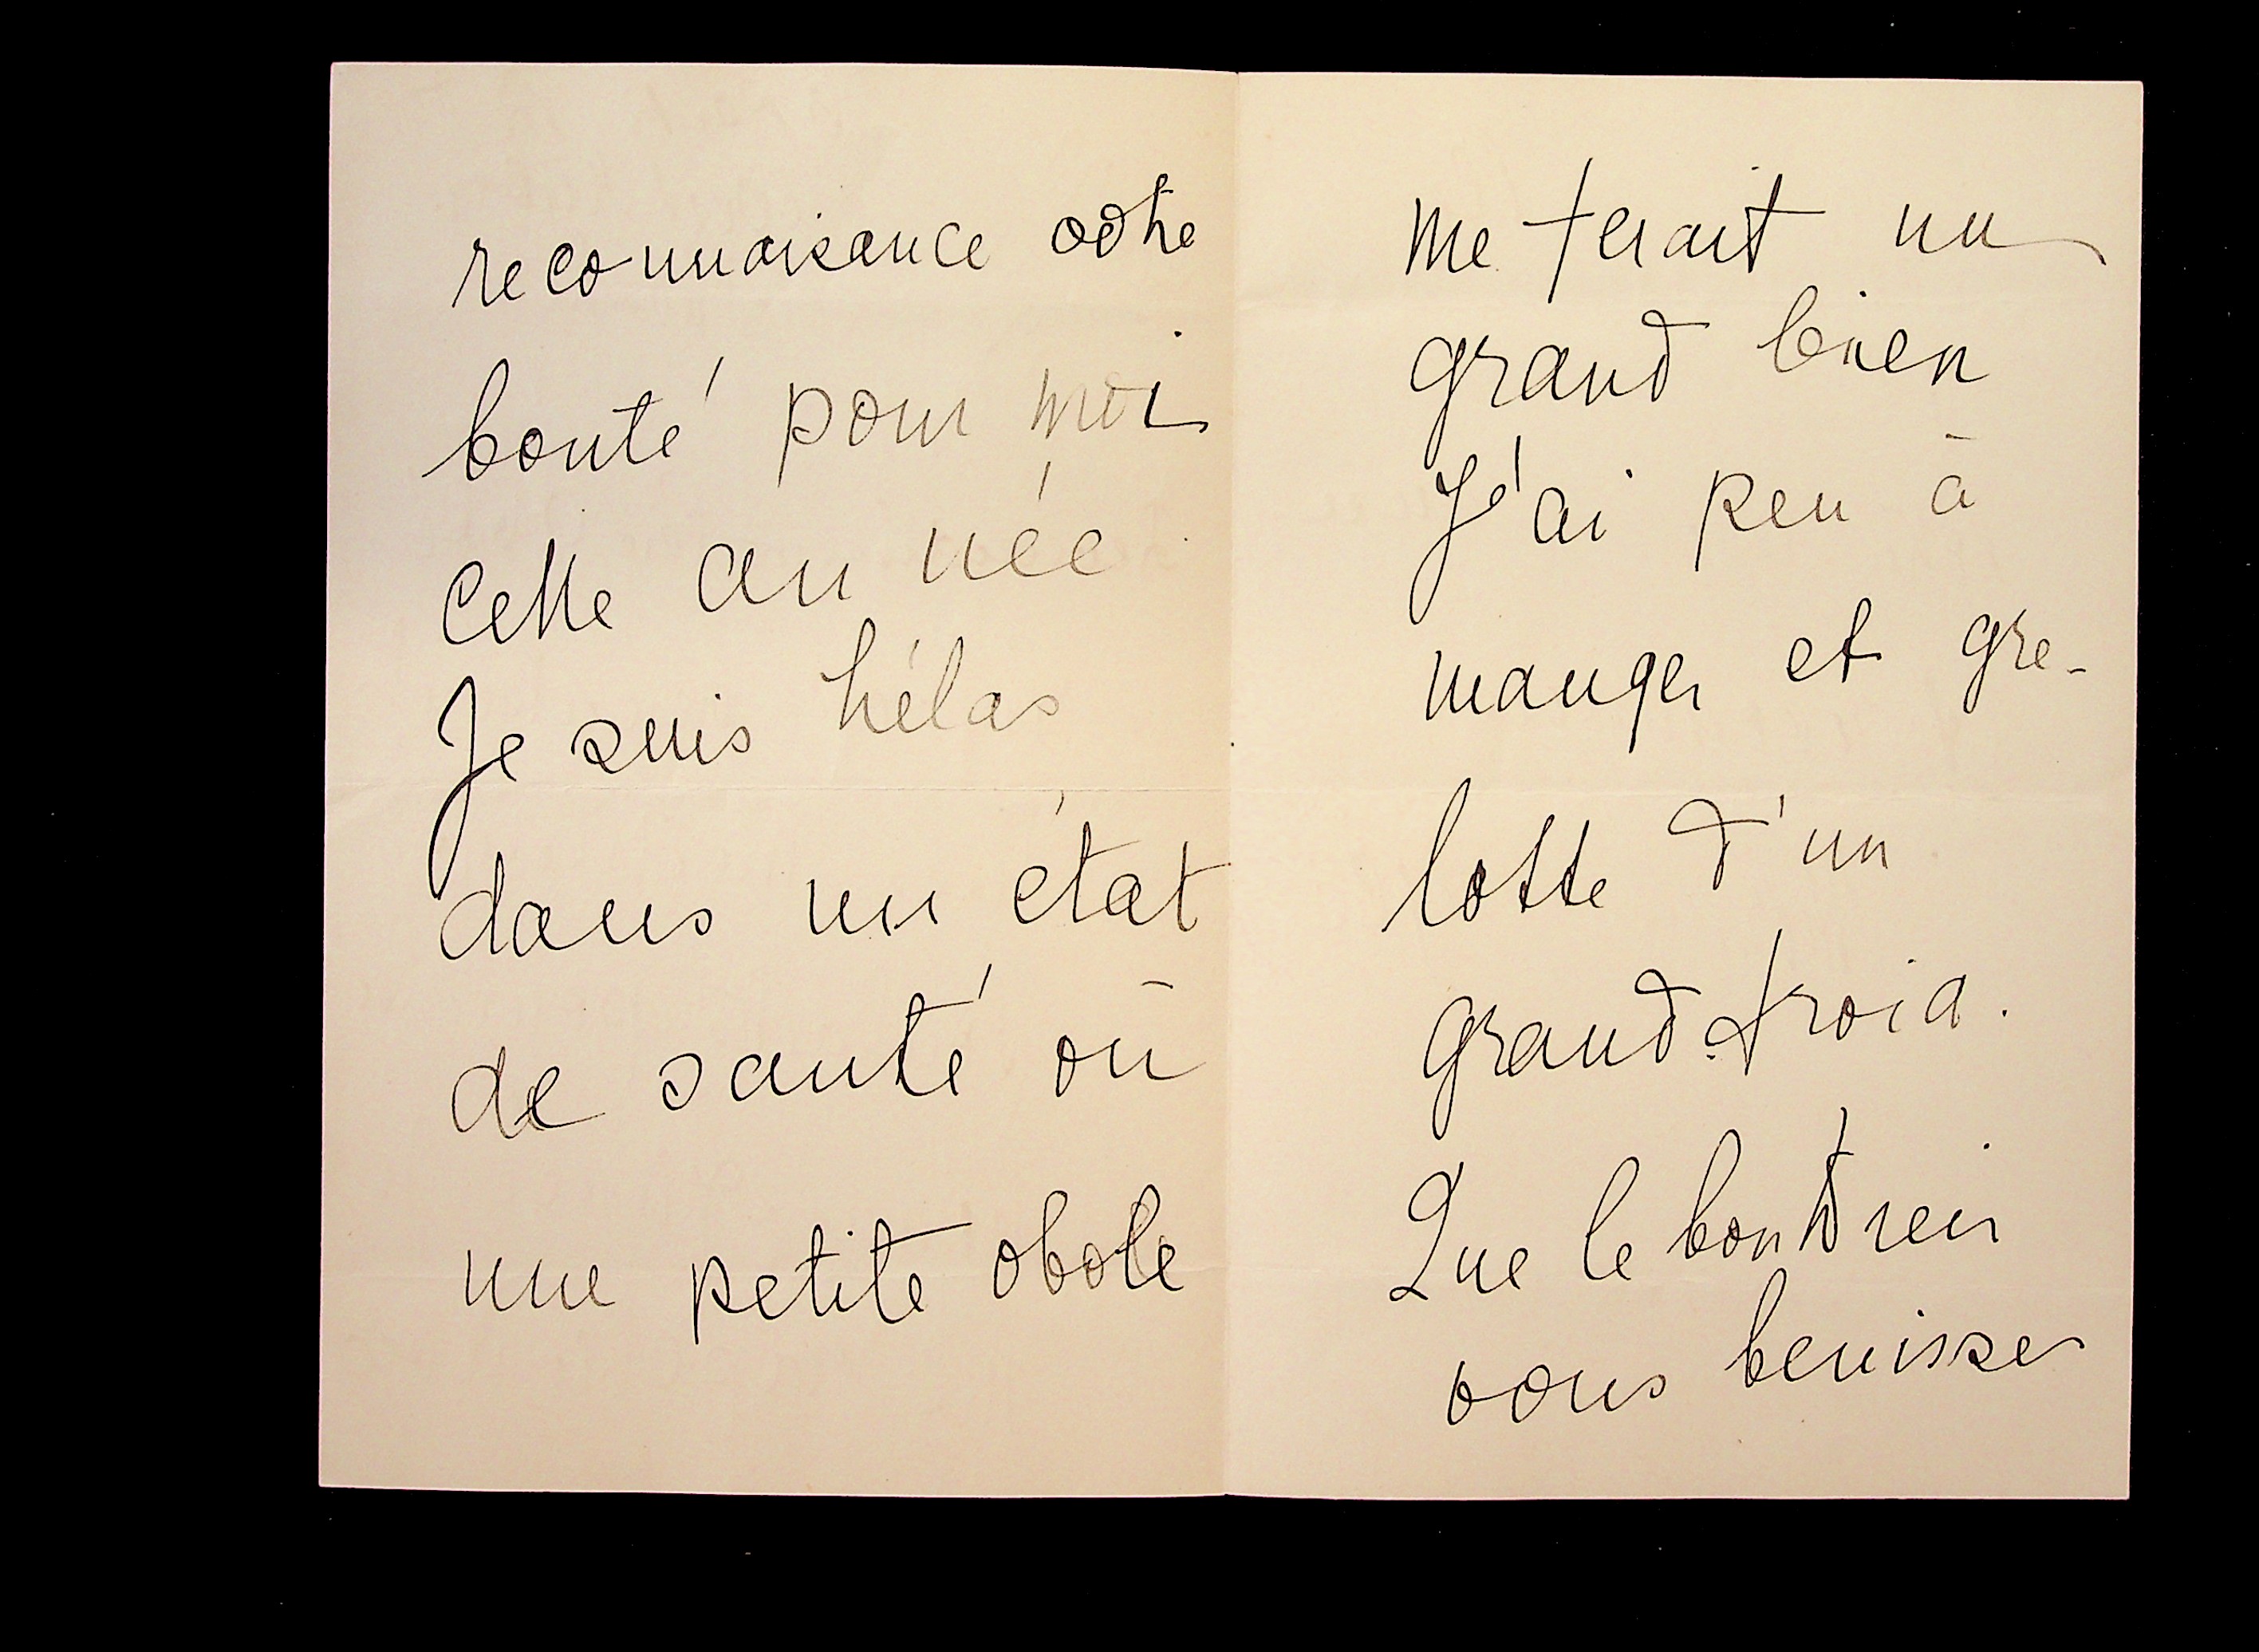 reconnaisance votre
bonté pour moi
cette année
Je suis hélas
dans un état
de santé où
une petite obole
me ferait un
grand bien
J'ai peu à
manger et gre-
lotte d'un
grand froid.
Que le bon Dieu
vous benisse